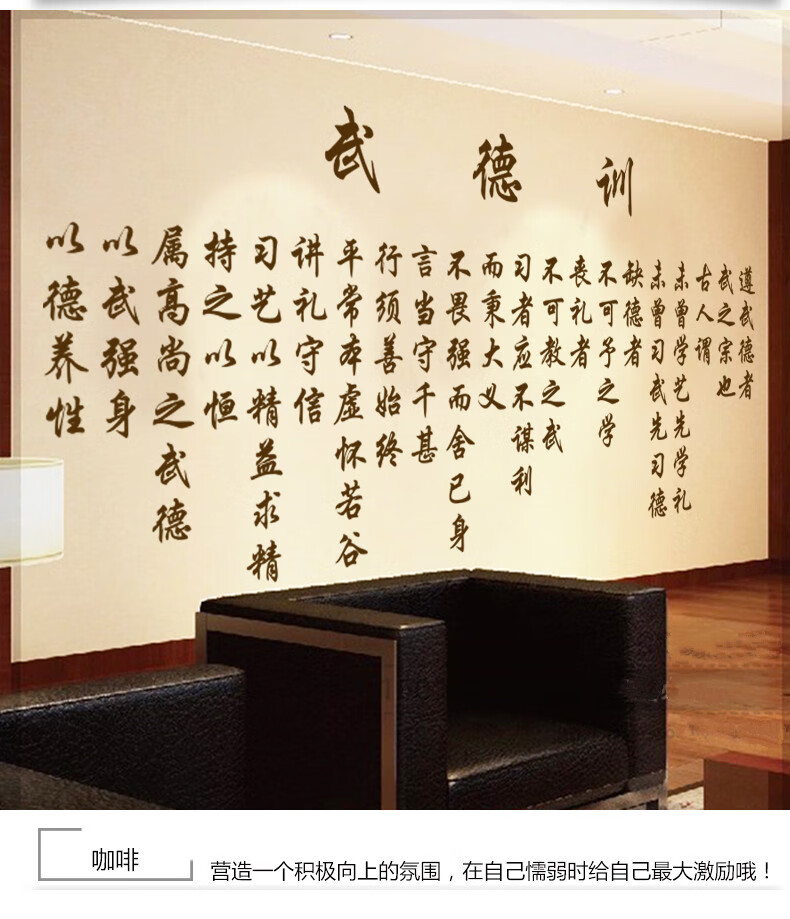 武德训
遵武德者
武之宗也
古人谓
未曾学艺先学礼
未曾习武先习德
缺德者
不可予之学
丧礼者
不可教之武
习者应不谋利
而秉大义
不畏强而舍已身
言当守千甚
行须善始终
平常本虚怀若谷
讲礼守信
习艺以精益求精
持之以恒
属高尚之武德
以武强身
以德养性
咖啡
营造一个积极向上的氛围，在自己懦弱时给自己最大激励哦！